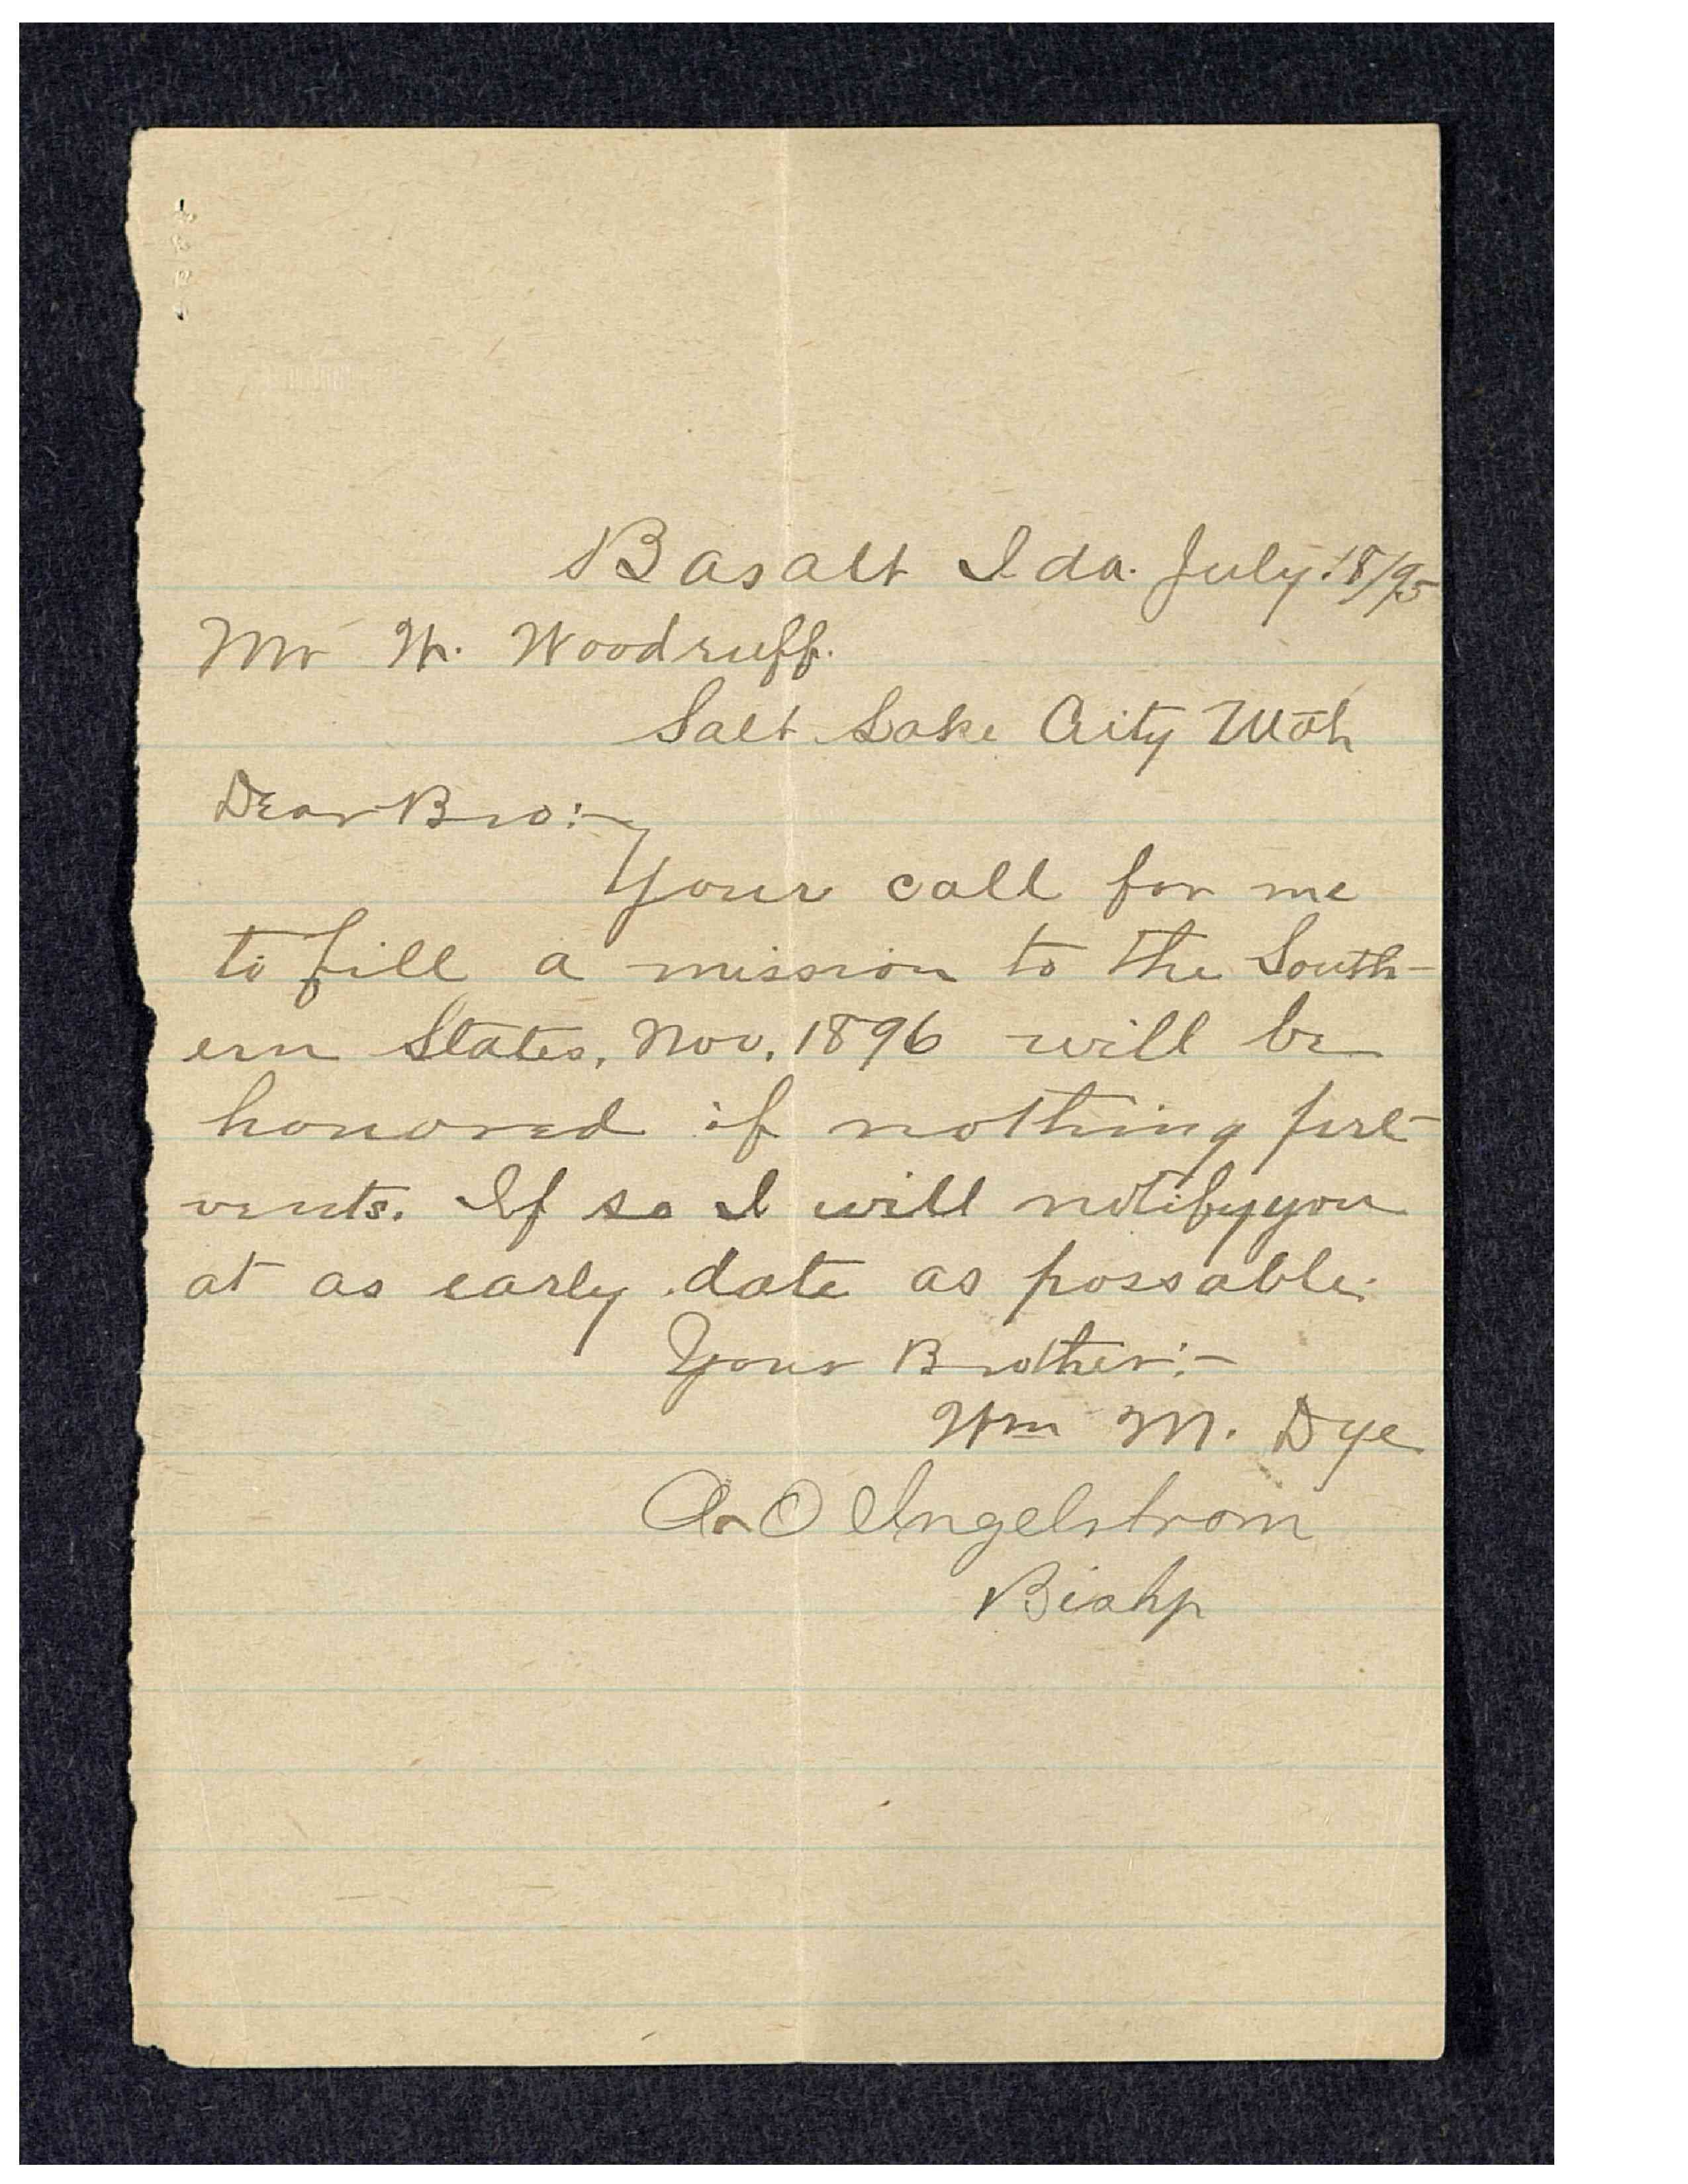 Basalt Ida. July. 18/95
Mr W. Woodruff.
Salt Lake City Utah
Dear Bro:-
Your call for me
to fill a mission to the South-
ern States, Nov. 1896 will be
honored if nothing pre-
vents. If so I will notify you
at as early date as possable.
Your Brother:-
Wm M. Dye
A O Ingelstrom
Bishp